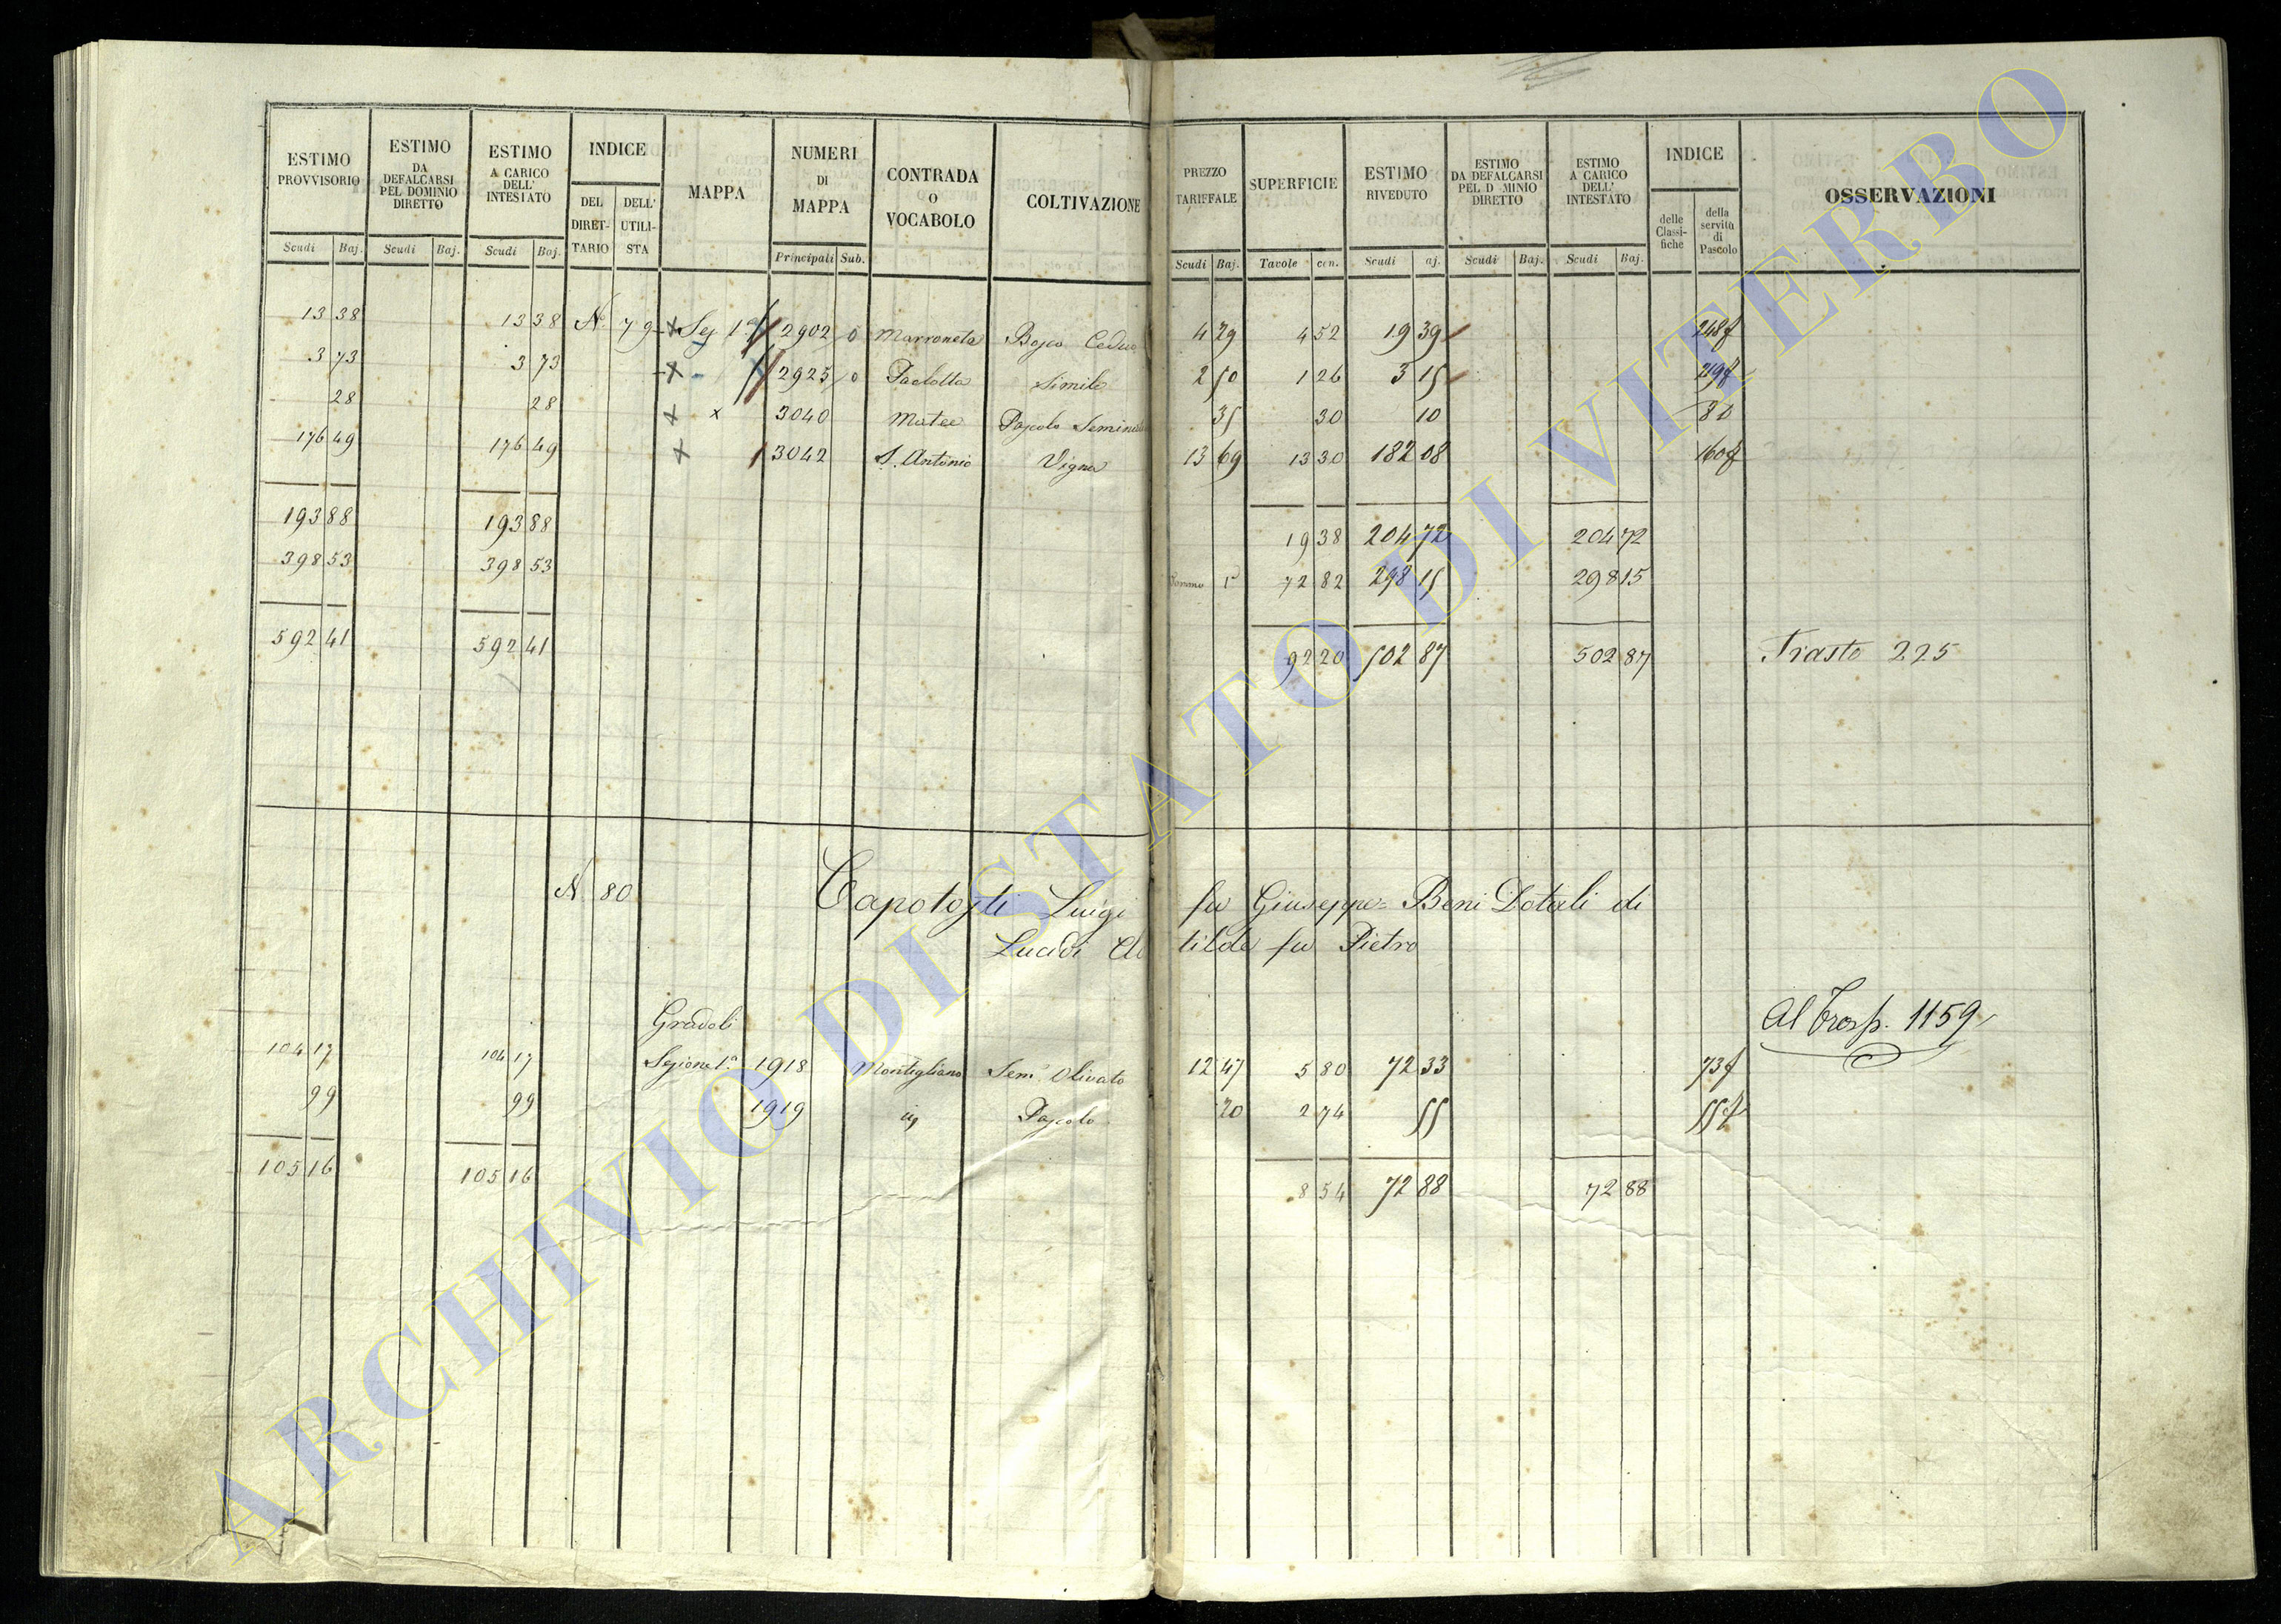 ESTIMO PROVVISORIO | ESTIMO DA DEFALCARSI PEL DOMINIO DIRETTO | ESTIMO A CARICO DELL' INTESTATO | INDICE | MAPPA | NUMERI DI MAPPA | CONTRADA O VOCABOLO | COLTIVAZIONE | PREZZO TARIFFALE | SUPERFICIE | ESTIMO RIVEDUTO | ESTIMO DA DEFALCARSI PEL D MINIO DIRETTO | ESTIMO A CARICO DELL' INTESTATO | INDICE | OSSERVAZIONI
DEL DIRET-TARIO | DELL' UTILI-STA | delle Classi-fiche | della servitù di Pascolo
Scudi | Baj. | Scudi | Baj. | Scudi | Baj. | Principali | Sub. | Scudi | Baj. | Tavole | cen. | Scudi | aj. | Scudi | Baj. | Scudi | Baj.
13 38 | 13 38 | N. 79 | Sez 1ª | 2902 | Marroneta | Bosco Ceduo | 4 29 | 4 52 | 19 39 | 248
3 73 | 3 73 | 2923 | Paolotta | Simile | 2 50 | 1 26 | 3 15
28 | 28 | x | 3040 | Matee | Pascolo | 35 | 30 | 10 | 80
176 49 | 176 49 | 3042 | S. Antonio | Vigna | 13 69 | 13 30 | 182 08 | 160
193 88 | 193 88 | 19 38 | 204 72 | 204 72
398 53 | 398 53 | 72 82 | 298 15 | 298 15
592 41 | 592 41 | 92 20 | 502 87 | 502 87 | Trasto 225
N 80 Capotosti Luigi fu Giuseppe = Beni Dotali di
Lucidi Clotilde fu Pietro
Gradoli
Al Trasp. 1159
104 17 | 104 17 | Sezione 1ª | 1918 | Montigliano | Sem.º Olivato | 12 47 | 5 80 | 72 33 | 73
99 | 99 | 1919 | id | Pascolo | 20 | 2 74 | 55 | 55
105 16 | 105 16 | 8 54 | 72 88 | 72 88
ARCHIVIO DI STATO DI VITERBO